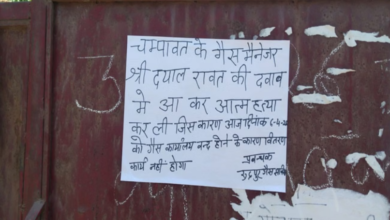 चम्पावत के गैस मैनेजर
श्री दयाल रावत की दवाब
मे आ कर आत्महत्या
कर ली जिस कारण आज दिनांक
को गैस कार्यालय बन्द होने के कारण वितरण
कार्य नही होगा
प्रबन्धक